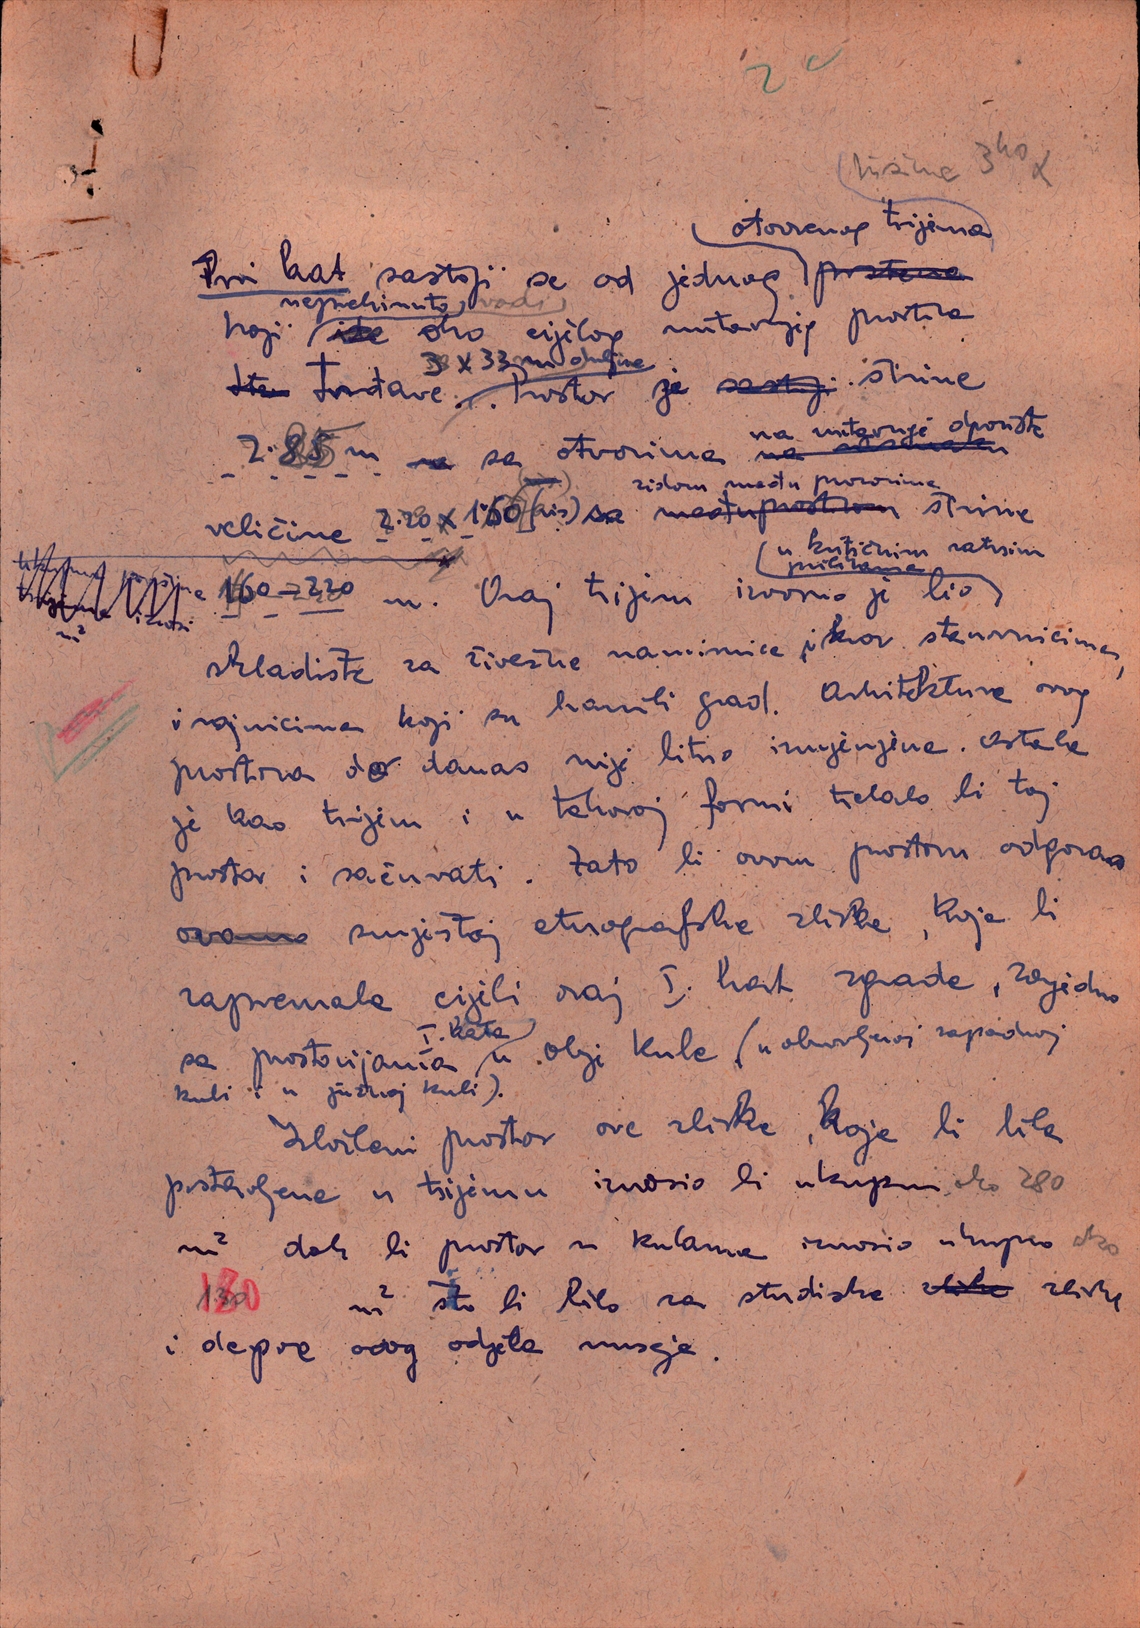 2
visina 3
otvorenog trijema
Prvi kat sastoji se od jednog prstena
neprekinuto vodi
koji ide oko cijelog unutarnjeg prostora
3 x 33 m duljine
tvrđave. Prostor je sastoji širine
na unutarnje dvorište
2.85 m sa otvorima
zidom među prozorima
veličine 2.20 x 1.60 (vis) sa međuprostorom širine
u kritičnim ratnim
prilikama
160-220 m. Ovaj trijem izvorno je bio
m²
skladište za živežne namirnice, i krov stanovnicima,
i vojnicima koji su branili grad. Arhitektura ovog
prostora do danas nije bitno izmjenjena. Ostala
je kao trijem i u takovoj formi trebalo bi taj
prostor i sačuvati. Zato bi ovom prostoru odgovarao
ovamo smještaj etnografske zbirke, koja bi
zapremala cijeli ovaj I. kat zgrade, zajedno
I. kata
sa prostorijama u obje kule (u obnovljenoj zapadnoj
kuli i u južnoj kuli).
Izložbeni prostor ove zbirke, koja bi bila
postavljena u trijemu iznosio bi ukupno oko 280
m² dok bi prostor u kulama iznosio ukupno oko
130 m² što bi bilo za studijske zbirke zbirke
i depoe ovog odjela muzeja.